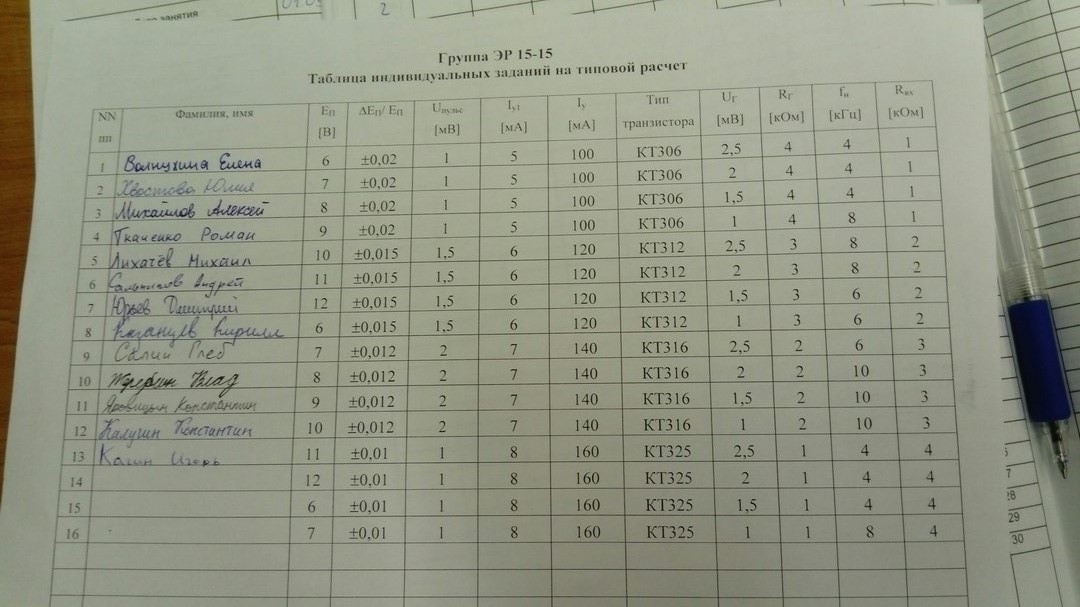 занятия
2
Группа ЭР 15-15
Таблица индивидуальных заданий на типовой расчет
NN пп Фамилия, имя Eп [В] ΔEп/ Eп Uпульс [мВ] Iyt [мА] Iy [мА] Тип транзистора Uг [мВ] Rг [кОм] fн [кГц] Rвх [кОм]
1 Волпухина Елена 6 ±0,02 1 5 100 КТ306 2,5 4 4 1
2 Хвостова Юлия 7 ±0,02 1 5 100 КТ306 2 4 4 1
3 Михайлов Алексей 8 ±0,02 1 5 100 КТ306 1,5 4 4 1
4 Ткаченко Роман 9 ±0,02 1 5 100 КТ306 1 4 8 1
5 Лихачёв Михаил 10 ±0,015 1,5 6 120 КТ312 2,5 3 8 2
6 Сальников Андрей 11 ±0,015 1,5 6 120 КТ312 2 3 8 2
7 Юрьев Дмитрий 12 ±0,015 1,5 6 120 КТ312 1,5 3 6 2
8 Казанцев Кирилл 6 ±0,015 1,5 6 120 КТ312 1 3 6 2
9 Глеб 7 ±0,012 2 7 140 КТ316 2,5 2 6 3
10 Влад 8 ±0,012 2 7 140 КТ316 2 2 10 3
11 Константин 9 ±0,012 2 7 140 КТ316 1,5 2 10 3
12 Калугин Константин 10 ±0,012 2 7 140 КТ316 1 2 10 3
13 Игорь 11 ±0,01 1 8 160 КТ325 2,5 1 4 4
14 12 ±0,01 1 8 160 КТ325 2 1 4 4
15 6 ±0,01 1 8 160 КТ325 1,5 1 4 4
16 7 ±0,01 1 8 160 КТ325 1 1 8 4
29
30